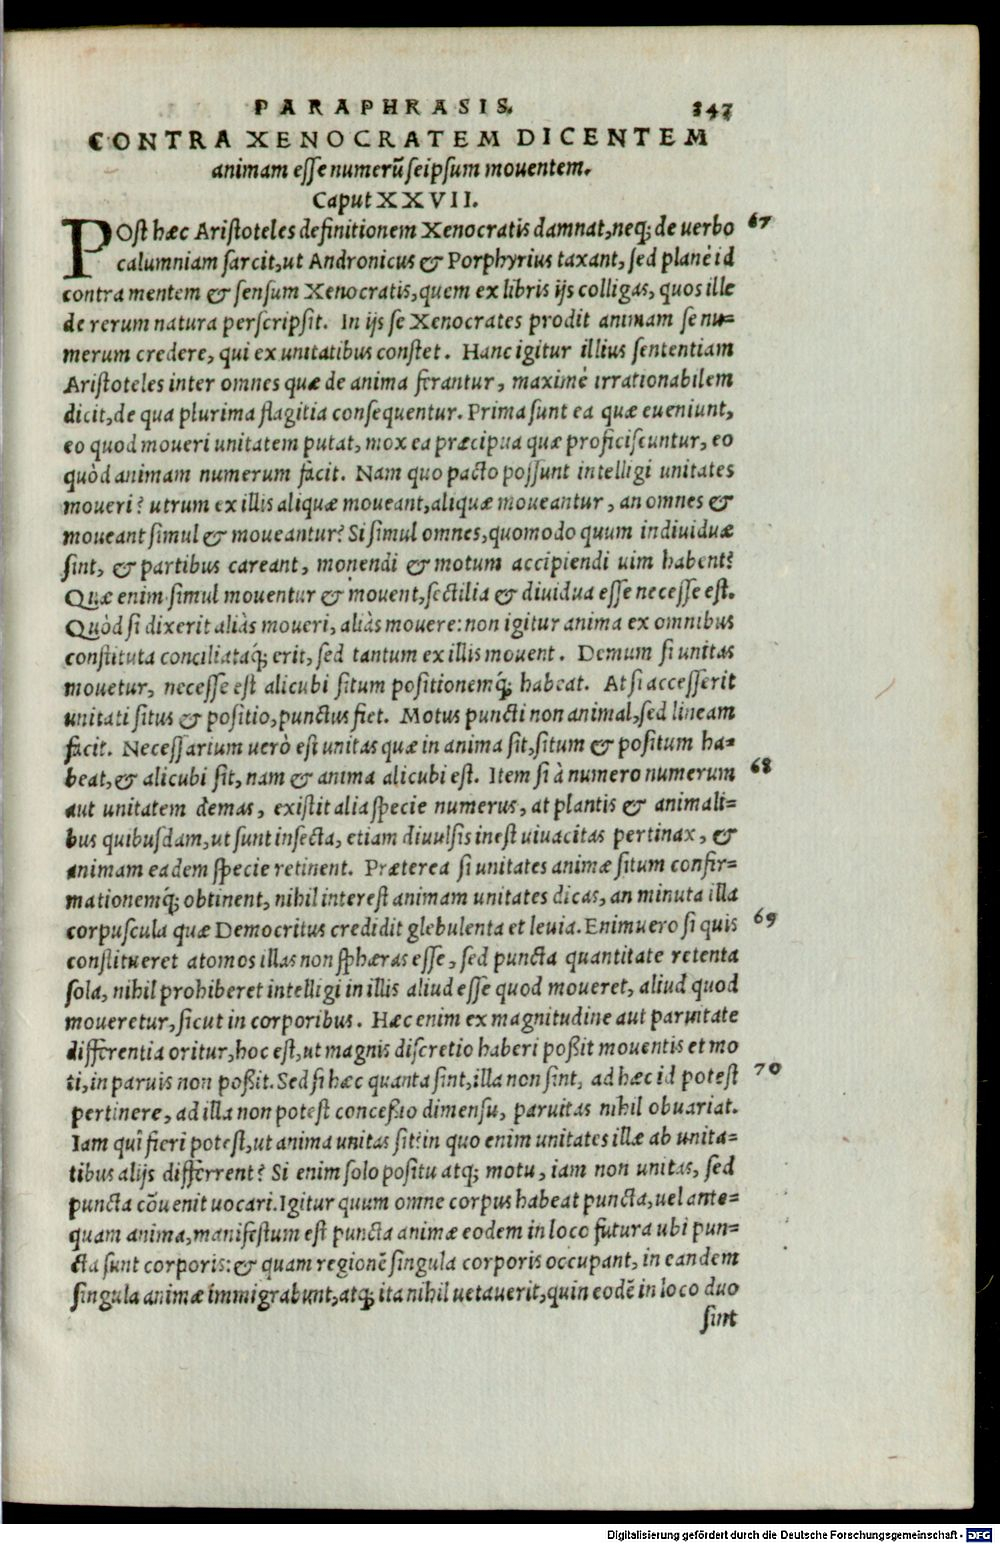 PARAPHRASIS. 247
CONTRA XENOCRATEM DICENTEM
animam esse numerũ seipsum mouentem.
Caput XXVII.
POst hæc Aristoteles definitionem Xenocratis damnat, neq; de uerbo 67
calumniam sarcit, ut Andronicus & Porphyrius taxant, sed planè id
contra mentem & sensum Xenocratis, quem ex libris ijs colligas, quos ille
de rerum natura perscripsit. In ijs se Xenocrates prodit animam se nu=
merum credere, qui ex unitatibus constet. Hanc igitur illius sententiam
Aristoteles inter omnes quæ de anima ferantur, maximè irrationabilem
dicit, de qua plurima flagitia consequentur. Prima sunt ea quæ eueniunt,
eo quod moueri unitatem putat, mox ea præcipua quæ proficiscuntur, eo
quòd animam numerum facit. Nam quo pacto possunt intelligi unitates
moueri? utrum ex illis aliquæ moueant, aliquæ moueantur, an omnes &
moueant simul & moueantur? Si simul omnes, quomodo quum indiuiduæ
sint, & partibus careant, mouendi & motum accipiendi uim habent?
Quæ enim simul mouentur & mouent, sectilia & diuidua esse necesse est.
Quòd si dixerit aliàs moueri, aliàs mouere: non igitur anima ex omnibus
constituta conciliataq́; erit, sed tantum ex illis mouent. Demum si unitas
mouetur, necesse est alicubi situm positionemq́; habeat. At si accesserit
unitati situs & positio, punctus fiet. Motus puncti non animal, sed lineam
facit. Necessarium uerò est unitas quæ in anima sit, situm & positum ha=
beat, & alicubi sit, nam & anima alicubi est. Item si à numero numerum 68
aut unitatem demas, existit alia specie numerus, at plantis & animali=
bus quibusdam, ut sunt insecta, etiam diuulsis inest uiuacitas pertinax, &
animam eadem specie retinent. Præterea si unitates animæ situm confir=
mationemq́; obtinent, nihil interest animam unitates dicas, an minuta illa
corpuscula quæ Democritus credidit glebulenta et leuia. Enimuero si quis 69
constitueret atomos illas non sphæras esse, sed puncta quantitate retenta
sola, nihil prohiberet intelligi in illis aliud esse quod moueret, aliud quod
moueretur, sicut in corporibus. Hæc enim ex magnitudine aut paruitate
differentia oritur, hoc est, ut magnis discretio haberi poßit mouentis et mo
ti, in paruis non poßit. Sed si hæc quanta sint, illa non sint, ad hæc id potest 70
pertinere, ad illa non potest conceßio dimensu, paruitas nihil obuariat.
Iam quî fieri potest, ut anima unitas sit? in quo enim unitates illæ ab unita=
tibus alijs differrent? Si enim solo positu atq; motu, iam non unitas, sed
puncta cõuenit uocari. Igitur quum omne corpus habeat puncta, uel ante=
quam anima, manifestum est puncta animæ eodem in loco futura ubi pun=
cta sunt corporis: & quam regionẽ singula corporis occupant, in eandem
singula animæ immigrabunt, atq; ita nihil uetauerit, quin eodẽ in loco duo
sint
Digitalisierung gefördert durch die Deutsche Forschungsgemeinschaft - DFG